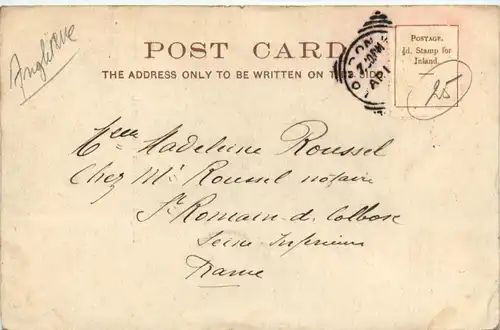 Angleterre
POST CARD
THE ADDRESS ONLY TO BE WRITTEN ON THIS SIDE
LONDON
7.0PM
AP 1
POSTAGE.
½d. Stamp for
Inland.
25
Melle Madeleine Roussel
Chez Mr Roussel notaire
St Romain-de Colbosc
Seine-Inférieure
France